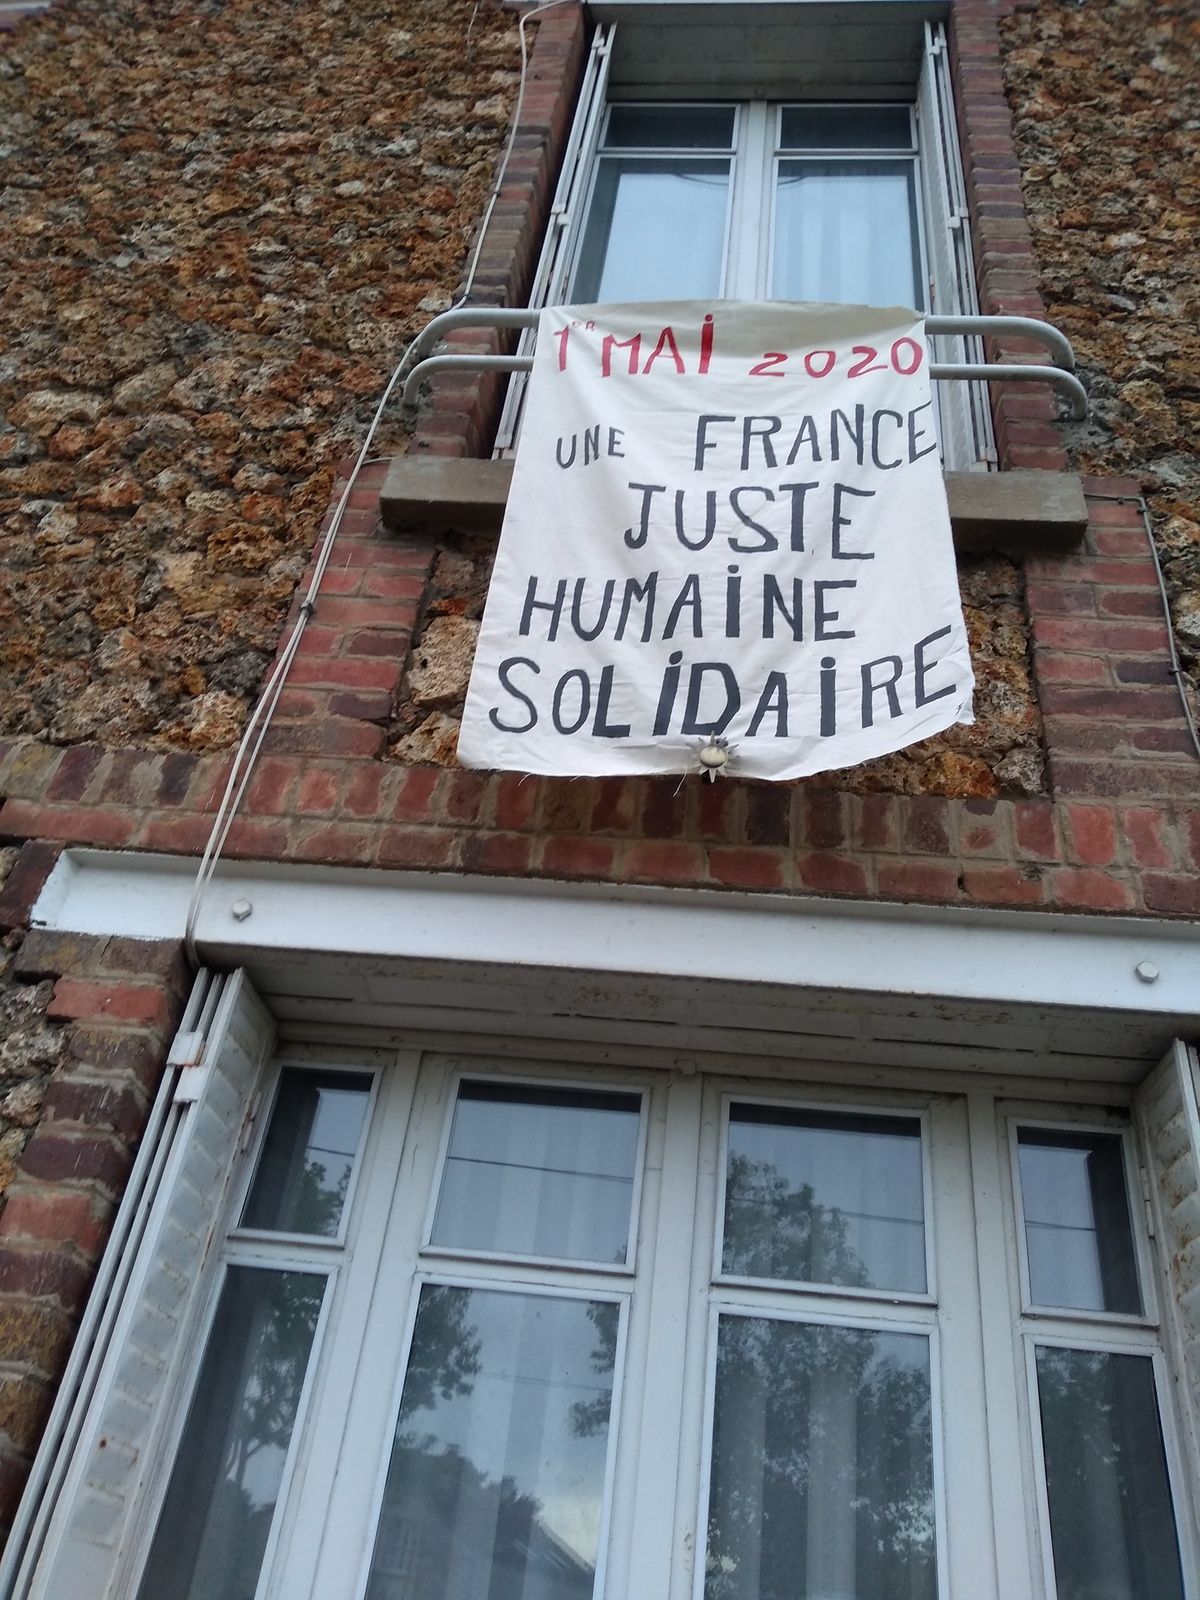 1ER MAi 2020
UNE FRANCE
JUSTE
HUMAiNE
SOLiDAiRE